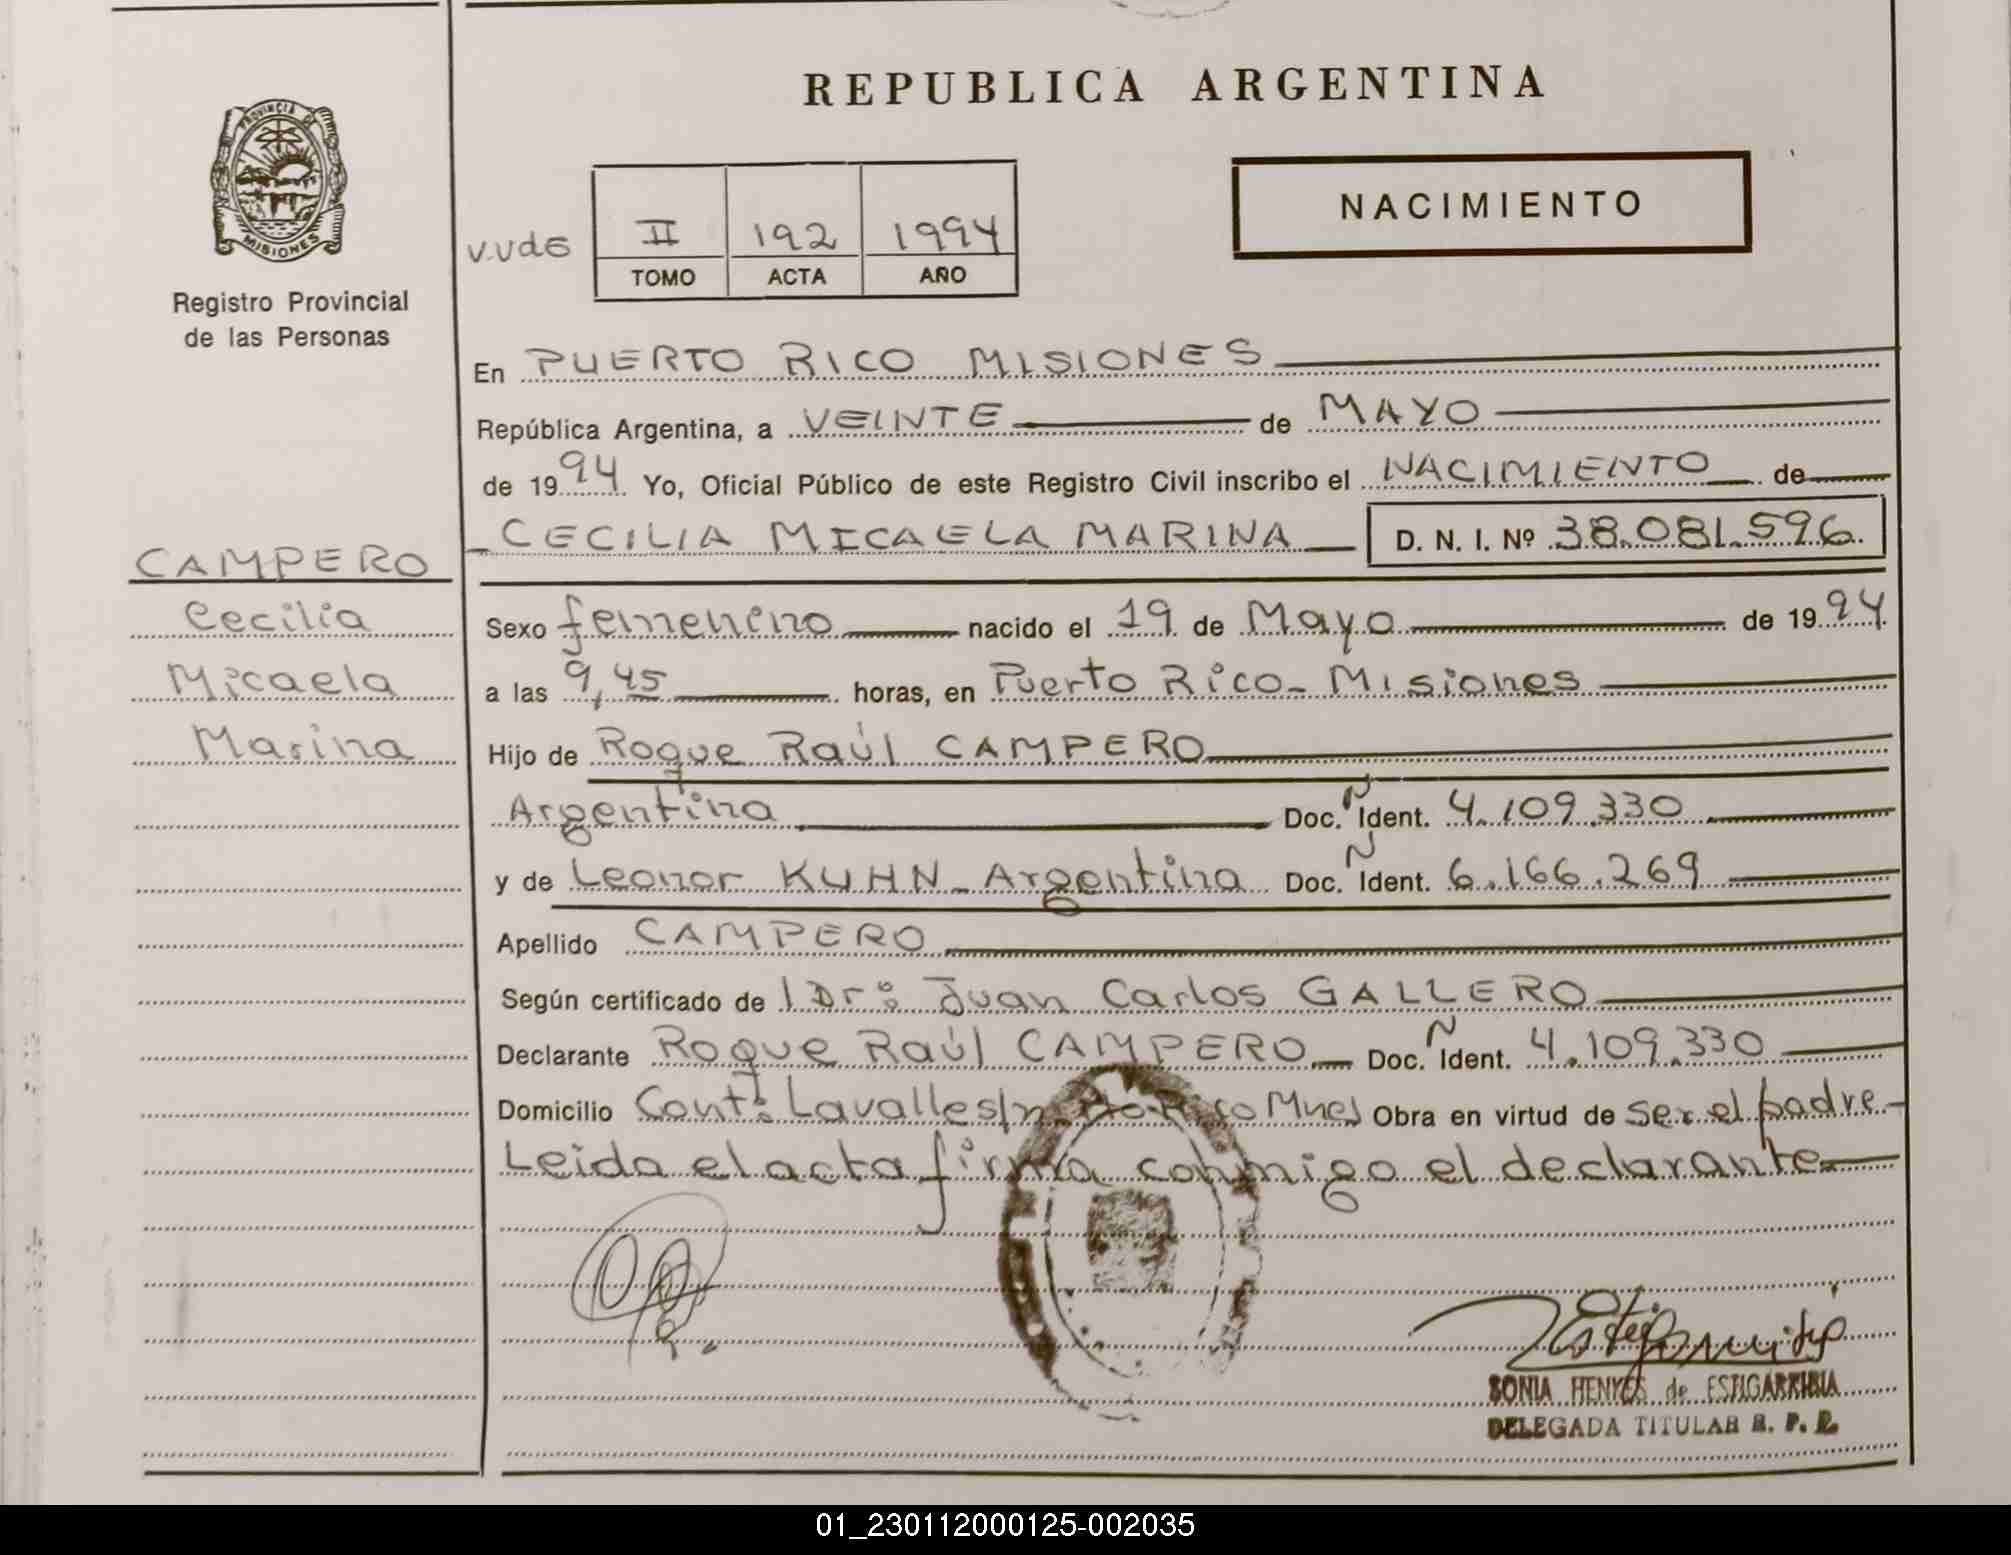 REPUBLICA ARGENTINA
PROVINCIA DE
MISIONES
Registro Provincial
de las Personas
NACIMIENTO
II 192 1994
TOMO ACTA AÑO
En PUERTO RICO MISIONES
República Argentina, a VEINTE de MAYO
de 1994 Yo, Oficial Público de este Registro Civil inscribo el NACIMIENTO de
CECILIA MICAELA MARINA D. N. I. Nº 38.081.596.
CAMPERO
Cecilia
Micaela
Marina
Sexo femenino nacido el 19 de Mayo de 1994
a las 9,45 horas, en Puerto Rico - Misiones
Hijo de Roque Raúl CAMPERO
Argentina Doc. Ñ Ident. 4.109.330
y de Leonor KUHN - Argentina Doc. Ñ Ident. 6.166.269
Apellido CAMPERO
Según certificado de l Dr: Juan Carlos GALLERO
Declarante Roque Raúl CAMPERO Doc. Ñ Ident. 4.109.330
Domicilio Lavalle s/n Rico Mnes Obra en virtud de ser el padre -
Leida el acta firma conmigo el declarante
SONIA HENYES de ESTIGARRIBIA
DELEGADA TITULAR R. P. P.
01_230112000125-002035